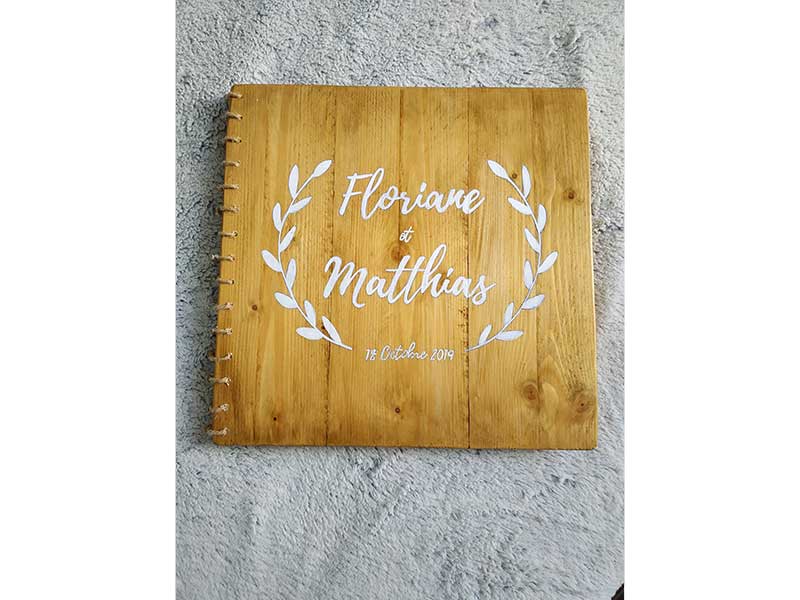 Floriane
et
Matthias
18 Octobre 2019